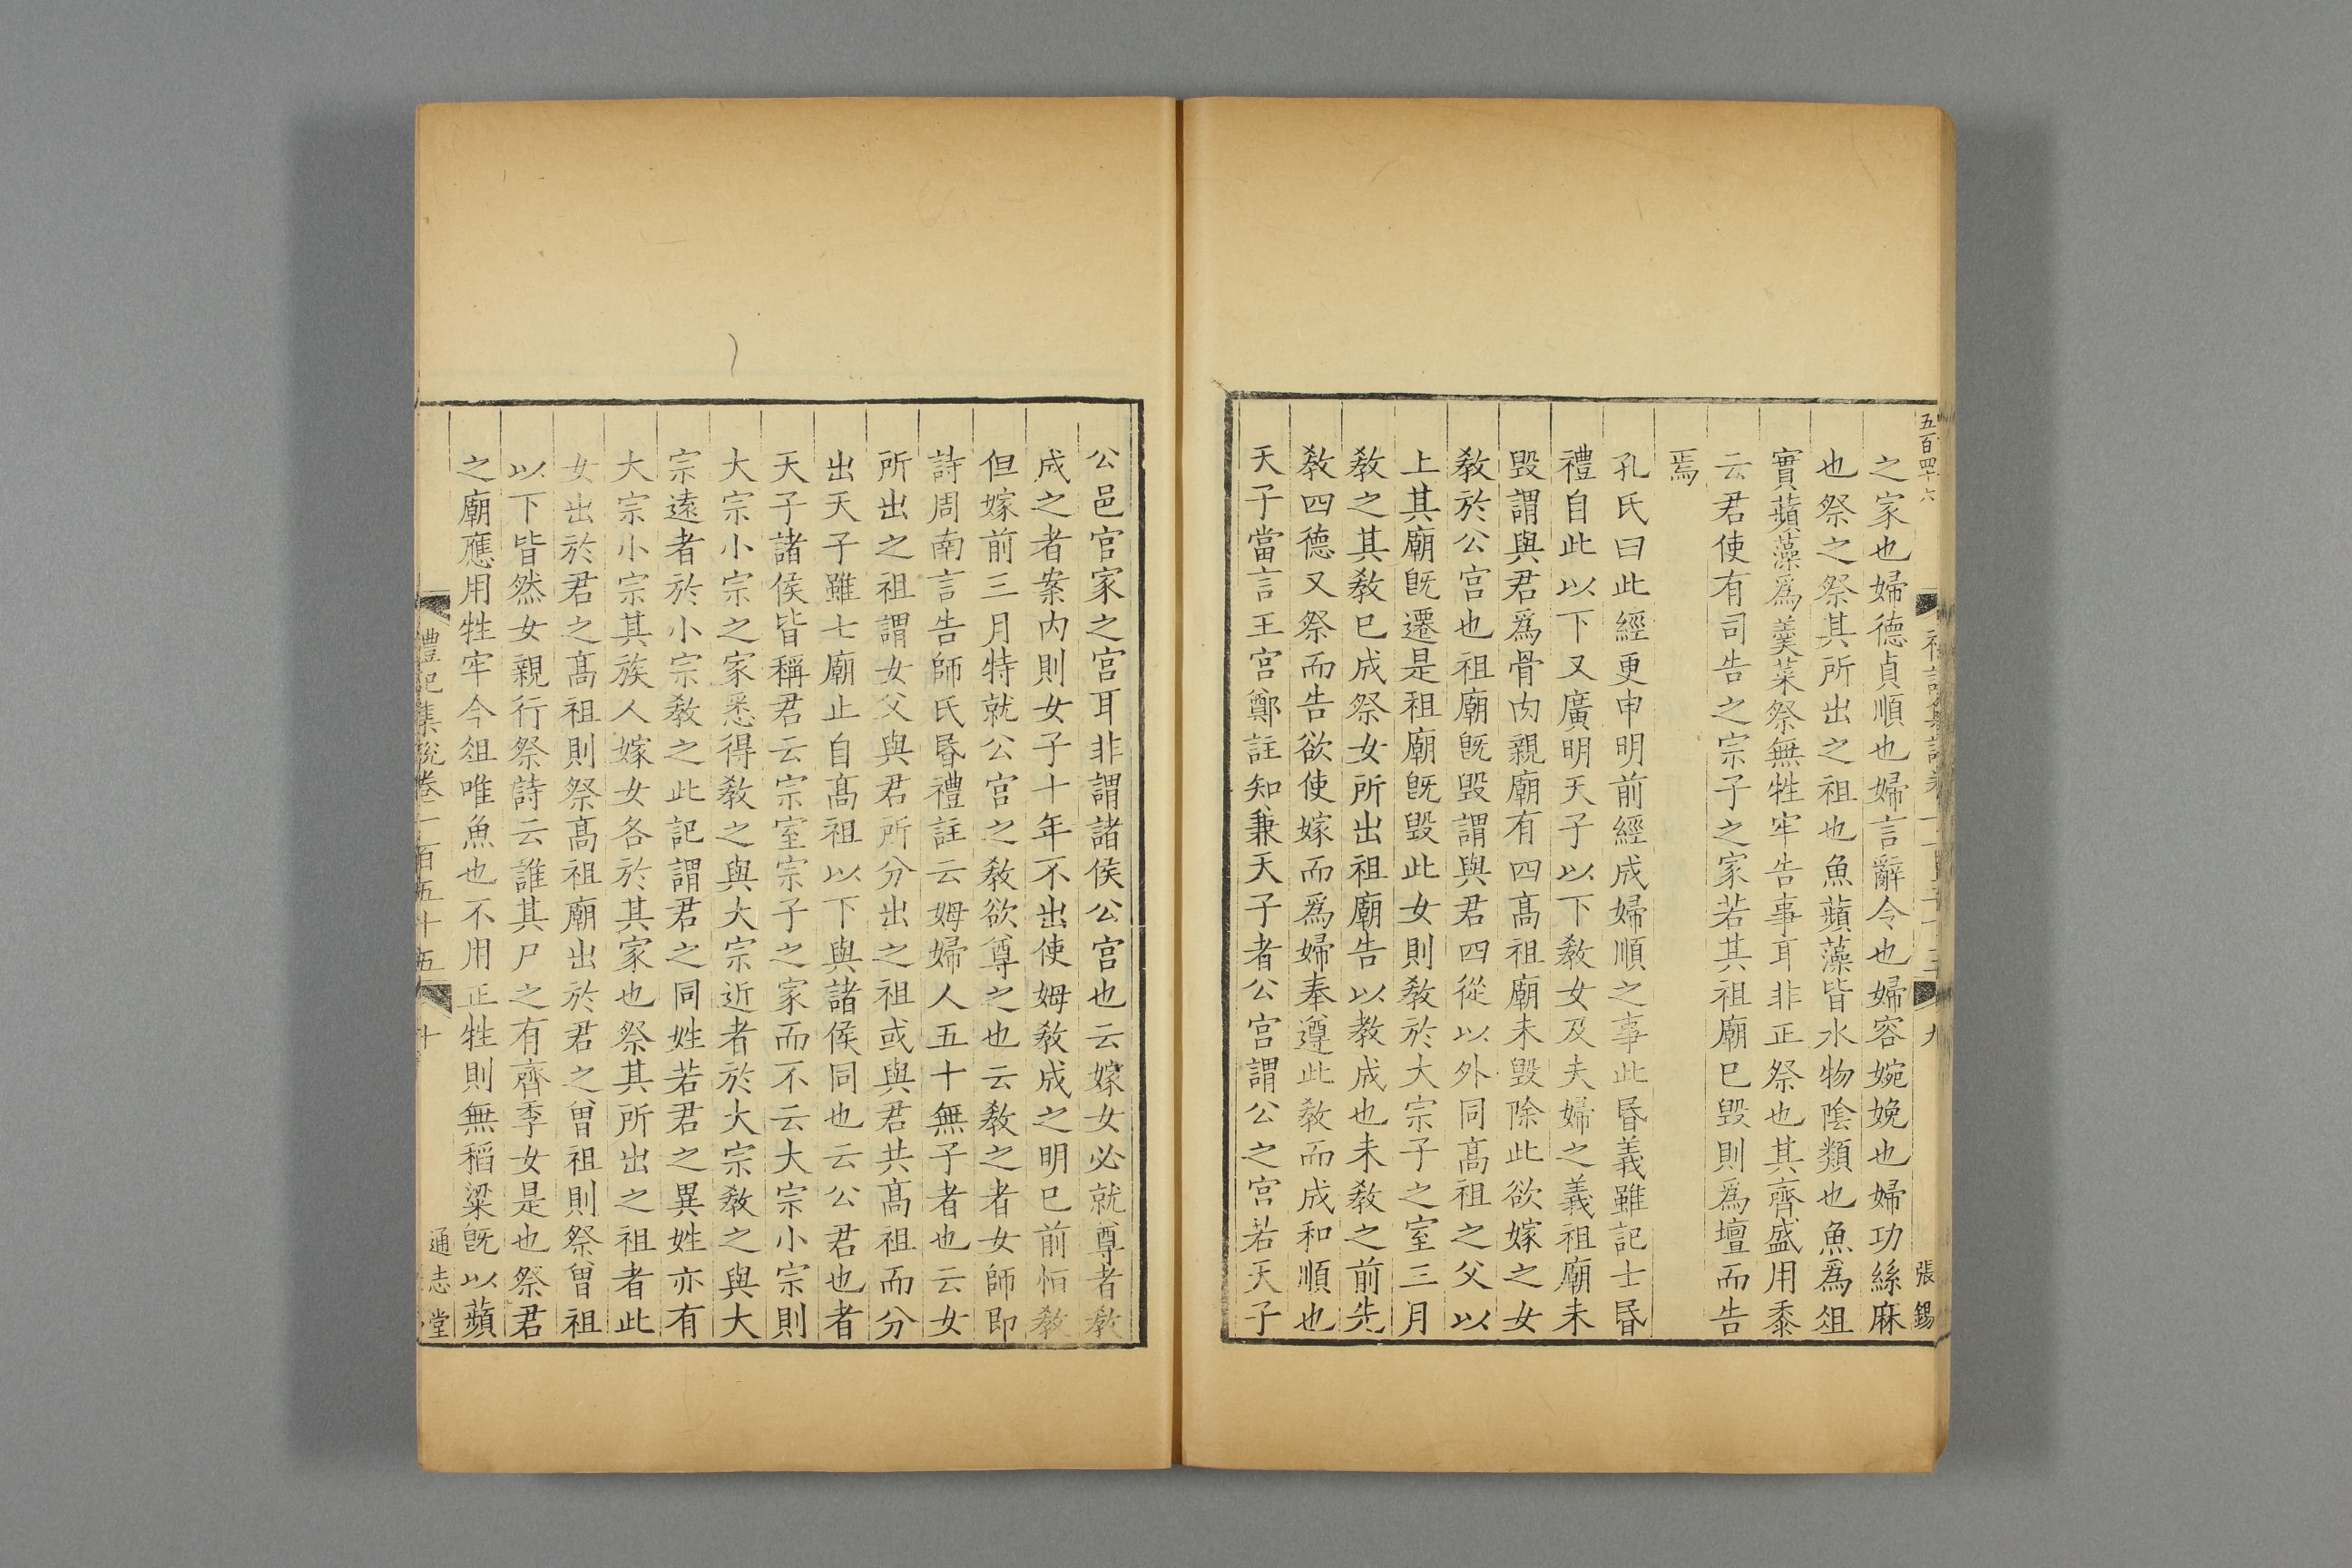 五百四十六
九
張錫
之家也婦德貞順也婦言辭令也婦容婉娩也婦功絲麻
也祭之祭其所出之祖也魚蘋藻皆水物陰類也魚爲俎
實蘋藻爲羹菜祭無牲牢告事耳非正祭也其齊盛用黍
云君使有司告之宗子之家若其祖廟已毀則爲壇而告
焉
孔氏曰此經更申明前經成婦順之事此昬義雖記士昬
禮自此以下又廣明天子以下敎女及夫婦之義祖廟未
毀謂與君爲骨肉親廟有四髙祖廟未毀除此欲嫁之女
敎於公宫也祖廟旣毀謂與君四從以外同髙祖之父以
上其廟旣遷是祖廟旣毀此女則敎於大宗子之室三月
敎之其敎已成祭女所出祖廟告以教成也未敎之前先
敎四德又祭而告欲使嫁而爲婦奉遵此敎而成和順也
天子當言王宫鄭註知兼天子者公宫謂公之宫若天子
公邑官家之宫耳非謂諸侯公宫也云嫁女必就尊者敎
成之者案内則女子十年不出使姆敎成之明已前恒敎
但嫁前三月特就公宫之敎欲尊之也云敎之者女師即
詩周南言告師氏昬禮註云姆婦人五十無子者也云女
所出之祖謂女父與君所分出之祖或與君共髙祖而分
出天子雖七廟止自髙祖以下與諸侯同也云公君也者
天子諸侯皆稱君云宗室宗子之家而不云大宗小宗則
大宗小宗之家悉得敎之與大宗近者於大宗敎之與大
宗遠者於小宗敎之此記謂君之同姓若君之異姓亦有
大宗小宗其族人嫁女各於其家也祭其所出之祖者此
女出於君之髙祖則祭髙祖廟出於君之曾祖則祭曾祖
以下皆然女親行祭詩云誰其尸之有齊季女是也祭君
之廟應用牲牢今俎唯魚也不用正牲則無稻粱旣以蘋
禮記集說卷一百五十五
十
通志堂